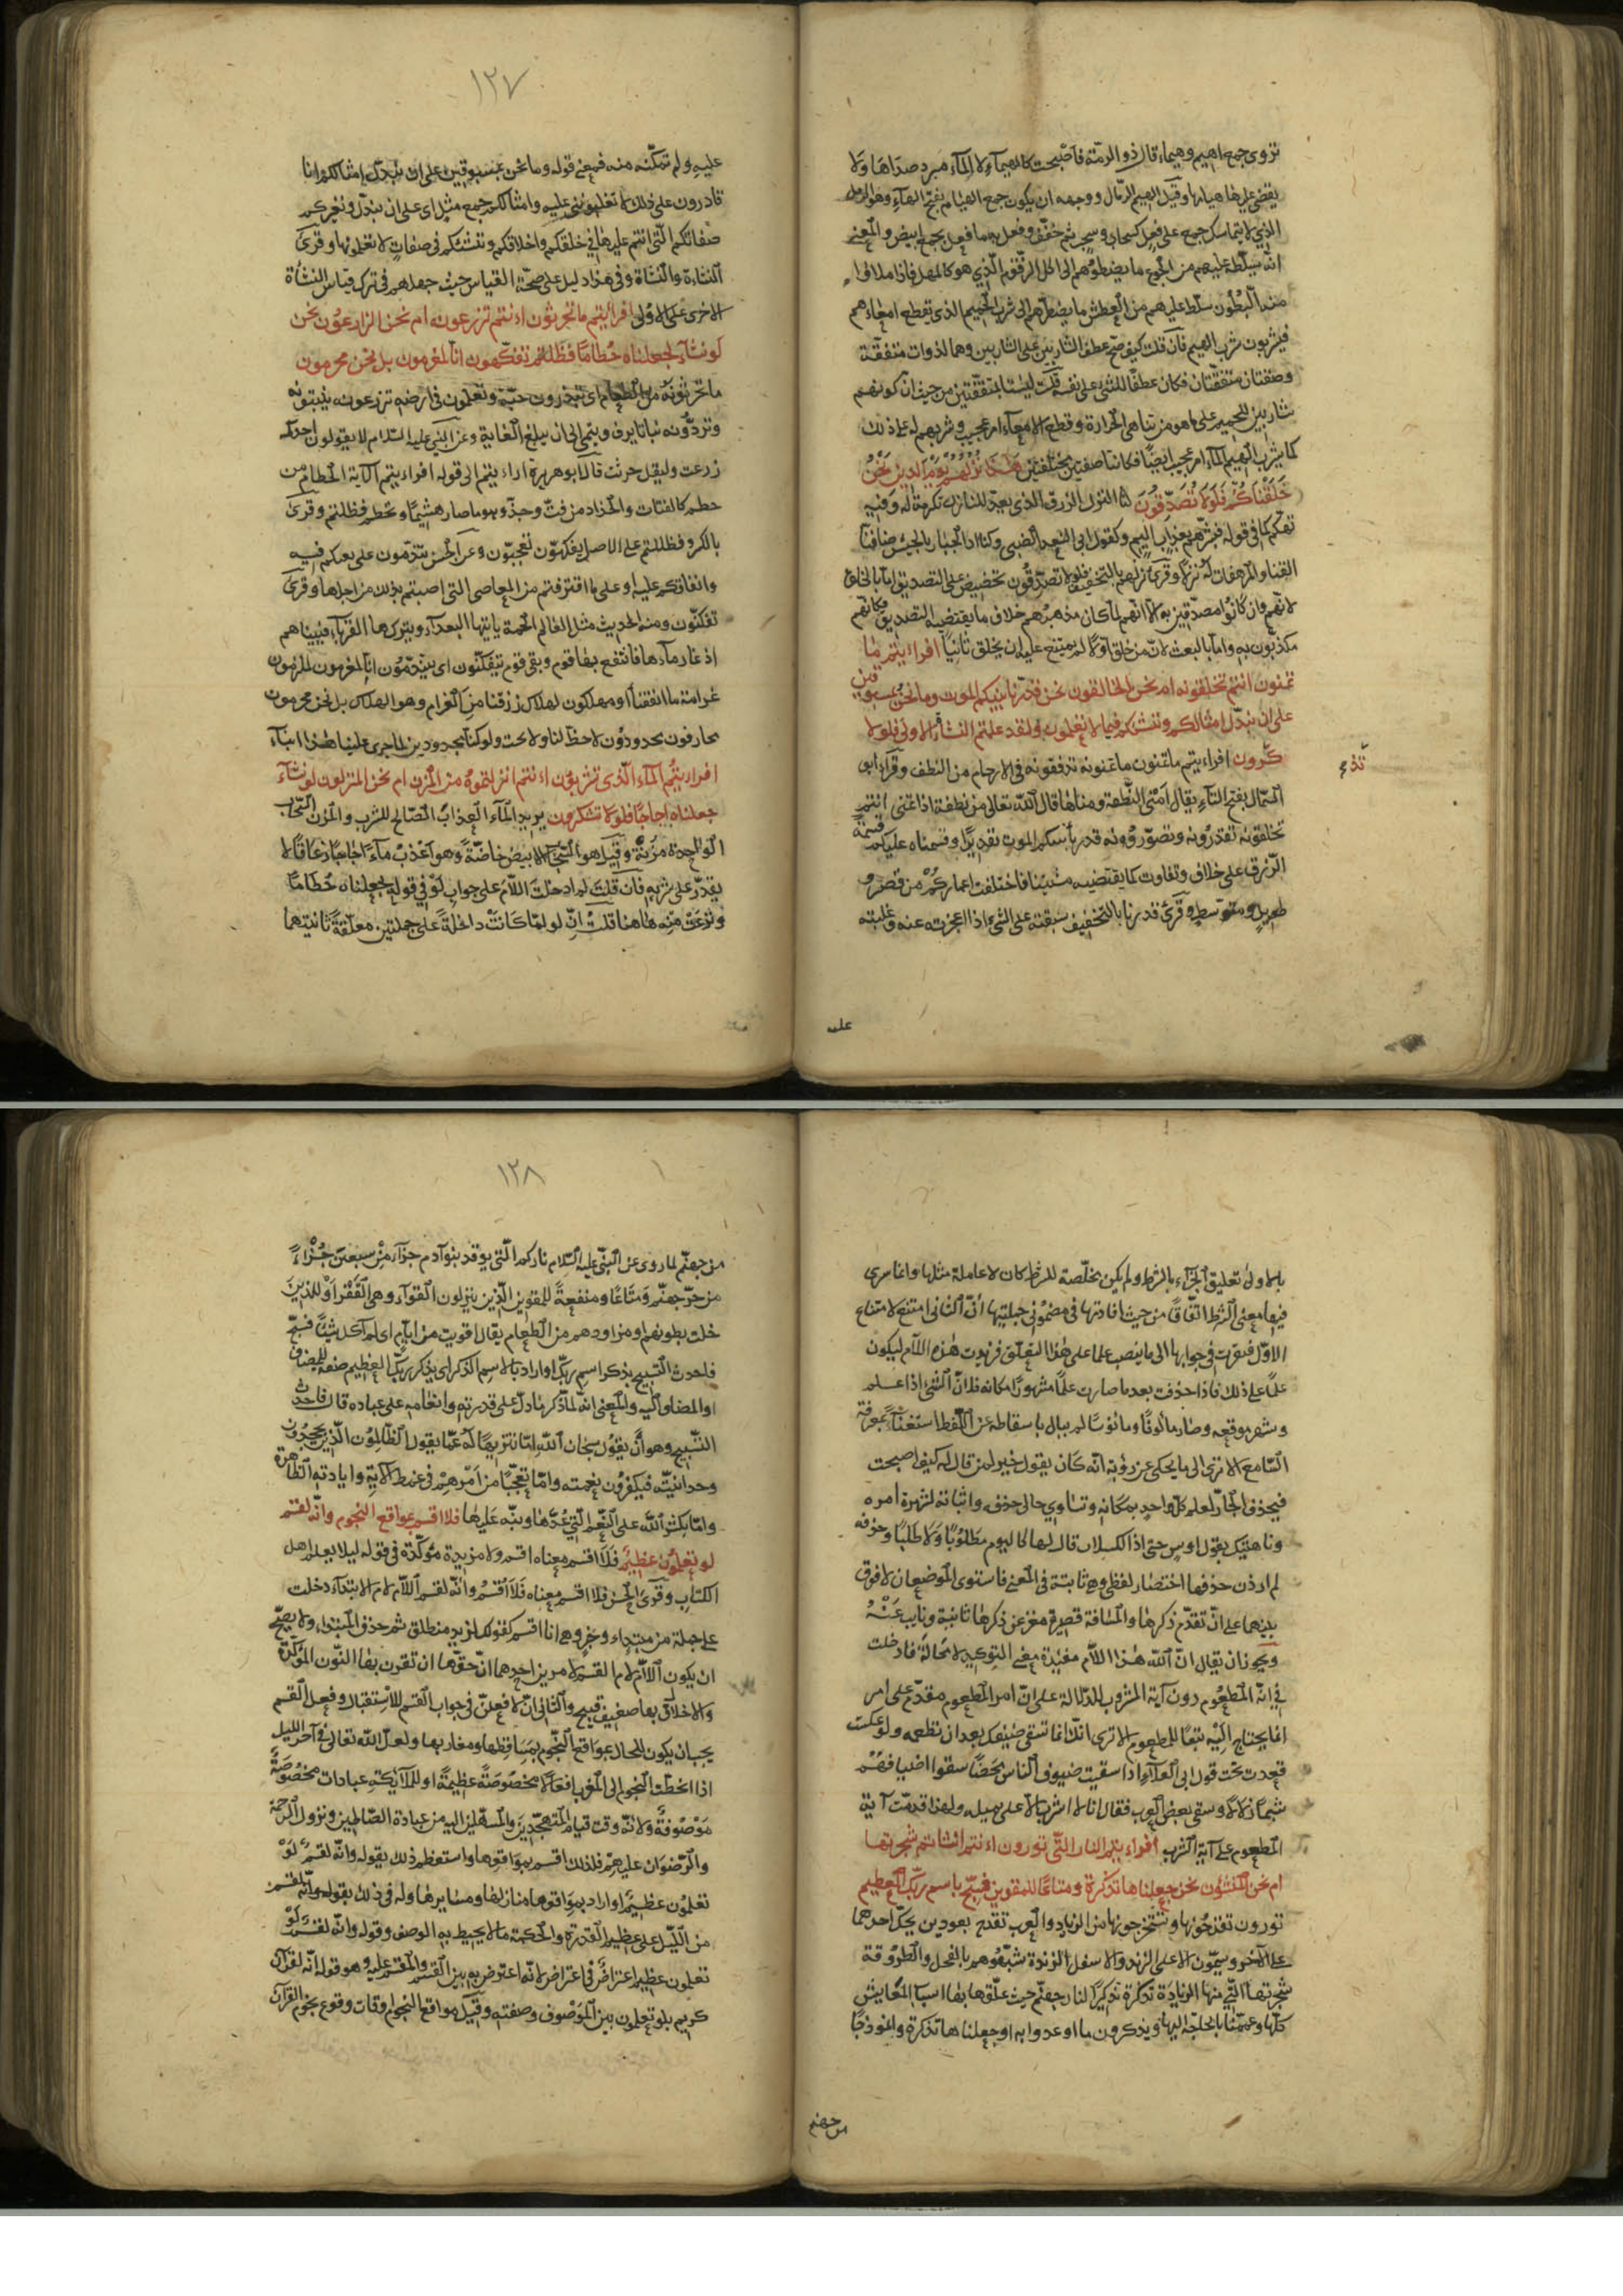 تروى جمع اهيم وهيماء قال ذو الرمّة فاصبحت كالهيماء لا المآء مبرد صداها ولا
يقضى عليها هيامها وقيل الهيم الرّمال ووجهه ان يكون جمع الهيام بفتح الهآء وهو الرمل
الذي لا يتماسك جمع على فعل كسحاب وسحب ثم خفف وفعل به ما فعل بجمع ابيض والمعنى
انه يسلّط عليهم من الجوع ما يضطرّهم الى اكل الزّقوم الّذي هو كالمهل فاذا ملاؤا
منه البطون سلّط عليهم من العطش ما يضطرّهم الى شرب الحميم الذى يقطع امعاءهم
فيشربون شرب الهيم فان قلت كيف صحّ عطف الشاربين على الشاربين وهما لذوات متفقة
وصفتان متفقتان فكان عطفًا للشئ على نفسه قلت ليستا بمتفقّتين من حيث ان كونهم
شاربين للحميم على ما هو من تناهى الحرارة وقطع الامعآء امر عجيب وشربهم له على ذلك
كما يشرب الهيم المآء امر عجيب ايضًا فكانتا صفتين مختلفتين هٰذا نُزُلُهُمْ يَوْمَ الدين نَحْنُ
خَلَقْنَاكُمْ فَلَوْلَا تُصَدِّقُونَ النّزل الرزق الذى يعدّ للنازل تكرمة له وفيه
تهكم كما فى قوله فبشّرهم بعذاب اليم وكقول ابى الشعر الضبى وكنا اذا الجبار بالجيش ضافنا
القنا والمرهفات له نزلا وقرئ نزلهم بالتخفيف فلولا تصدّقُون تحضيض على التصديق اما بالخلق
لانّهم وان كانُوا مصدّقين به الّا انّهم لما كان مذهبهم خلاف ما يقتضيه التصديق فكانّهم
مكذبون به واما بالبعث لانّ من خلق اوّلا لم يمتنع عليه ان يخلق ثانيًا افراءيتم ما
تمنون ءانتم تخلقونه ام نحن الخالقون نحن قدّرنا بينكم الموت وما نحن بمسبوقين
على ان نبدّل امثالكم وننشئكم فيما لا تعلمون ولقد علمتم النشأة الاولى فلولا
تذ
كّرون افراءيتم ما تمنون ما تمنونه تدفقونه فى الارحام من النطف وقرأ ابو
السّمّال بفتح التآء يقال امنى النّطفة ومناها قال اللّه تعالى من نطفة اذا تمنى ءانتم
تخلقونه تقدرُونه وتصوّرُونه قدرنا بينكم الموت تقديرًا وقسمناه عليكم قسمة
الرّزق على خلاف وتفاوت كما يقتضيه مشيئتنا فاختلفت اعماركُمْ من قصير و
طويل ومتوّسط وقرئ قدرنا بالتخفيف سبقته على الشئ اذا اعجزته عنه وغلبته
عليه
١٢٧
عليه ولم تمكنه منه فمعنى قوله وما نحن بمسبوقين على ان نبدّل امثالكم انا
قادرون على ذلك لا تغلبوننا عليه وامثالكم جمع مثل اى على ان نبدّل ونغير كم
صفاتكم الّتى انتم عليها فى خلقكم واخلاقكم وننشئكم فى صفات لا تعلمونها وقرئ
النشاءة والنشأة وفى هذا دليل على صحّة القياس حيث جهلهم فى ترك قياس النشأة
الاخرى على الاولى افراءيتم ما تحرثون ءانتم تزرعونه ام نحن الزارعُون نحن
لو نشآء لجعلناه حُطامًا فظلتم تفكّهون انّا لمغرمون بل نحن محرمون
ما تحرثونه من الطعام اى تبذرون حبّه وتعملون فى ارضه تزرعونه ينبتونه
وتردّونه نباتا يرف وينمى الى ان يبلغ الغاية وعن النبى عليه السلام لا يقولون احدكم
زرعت وليقل حرثت قال ابو هريرة اراءيتم الى قوله افراءيتم الآية الحطام من
حطم كالفتات والجذاذ من فتّ وجذّ وهو ما صار هشيمًا وتحطم فظلتم وقرئ
بالكسر وفظللتم على الاصل تفكهون تعجبُون وعن الحسن تندّمون على تعبكم فيه
وانفاقكم عليه او على ما اقترفتم من المعاصى التى اصبتم بذلك من اجلها وقرئ
تفكنّون ومنه الحديث مثل العالم الحمة ياتيها البعدآء ويتركها القربآء فبيناهم
اذ غار مآءها فانتفع بها قوم وبقى قوم تيفكنّون اى يتندّمُون انّا لمغرمون لملزمون
غرامة ما انفقنا او مهلكون لهلاك رزقنا من الغرام وهو الهلاك بل نحن محرمون
محارفون محدودُون لا حظّ لنا ولا بحت ولو كنّا مجدودين لما جرى علينا هٰذا انبآء
افراءيتُم المآء الّذى تشربون ءانتم انزلتموهُ من المزن ام نحن المنزلون لو نشآء
جعلناه اجاجًا فلولا تشكرون يريد المآء العذاب الصّالح للشرب والمزن السّحاب
الواحدة مزنة وقيل هو السّحاب الابيض خاصّةً وهو اعذب مآءًا اجاجًا زعاقًا لا
يقدّر على شربه فان قلت لم ادخلت اللّام على جواب لَوْ فى قوله لجعلناه حُطامًا
ونزعت منه هاهنا قلت انّ لو لمّا كانت داخلةً على جملتين معلّقةً ثانيتهما
بالاولى تعليق الجزآء بالشرط ولم يكن مخلّصة للشرط كان لا عاملة مثلها وانما سرى
فيها معنى الشرط اتّفاقًا من حيث افادتها فى مضمُونى جملتيها انّ الثانى امتنع لامتناع
الاوّل فتقرت فى جوابها الى ما ينصب علما على هٰذا التعلّق فزيدت هٰذه اللّام ليكون
علمًا على ذلك فاذا حذفت بعد ما صارت علمًا مشهورًا مكانه فلانّ الشئ اذا علم
وشهر موقعه وصار مألوفًا ومأنوسًا لم يبال باسقاطه عن اللّفظ استغناءً بمعرفة
السّامع الا ترى الى ما يحكى عن رؤبة انّه كان يقول خير لمن قال له كيف اصبحت
فيحذف الجارّ لعلم كلّ واحد بمكانه وتساوى حالى حذفه واثباته لشهرة امره
وناهيك بقول اوس حتى اذا الكلاب قال لها كاليوم مطلُوبًا ولا طلبًا وحذفه
لم ارذن حذفها اختصار لفظى وهى ثابتة فى المعنى فاستوى الموضعان لا فرق
بينهما على انّ تقدّم ذكرها والمسافة قصيرة مغن عن ذكرها ثانية ونايب عَنْهُ
ويجوز ان يقال انّ اللّه هٰذا اللّام مفيدة معنى التوكيد لا محالة فادخلت
فى اية المطعُوم دون آية المشروب للدّلالة على انّ امر المطعوم مقدّم على امر
انما يحتاج اليه تبعًا للمطعوم الا ترى انّك انما تسقى ضيفك بعد ان تطعمه ولو عكست
قعدت تحت قول ابى العلآء اذا سقيت ضيوف الناس محضًا سقوا اضيافهُم
شبمًا زلالا وسقى بعض العرب فقال انا لا اشرب الّا على ثميله ولهذا قدمّت آية
المطعوم على آية الشرب افراءيتم النار الّتى تورون ءانتم انشاتم شجرتها
ام نحن المنشؤن نحن جعلناها تذكرة ومتاعًا للمقوين فسبّح باسم ربّك العظيم
تورون تقدحُونها وتستخرجونها من الزناد والعرب تقدح بعودين يحكّ احدهما
على الآخر ويسمّون الاعلى الزند والاسفل الزندة شبّهُوهم بالفحل والطروقة
شجرتها التّى منها الزناد تذكرة تذكيرًا لنار جهنّم حيث علّقوها بها اسباب المعايش
كلّها وعمّمنا بالحاجة اليها ويذكرون ما اوعدوا به او جعلناها تذكرة وانموذجًا
من جهنم
١٢٨
من جهنّم لما روى عن النبّى عليه السّلام ناركم الّتى يوقد بنو آدم جزآء مِنْ سبعين جُزْاءً
من حرّ جهنّم ومتاعًا ومنفعةً للمقوين الّذين ينزلون القوآء وهى القَفْر او للذين
خلت بطونهم او مزاودهم من الطعام يقال اقويت من ايّام اى لم آكل شيئًا فسبّح
فاحدث التسبيح بذكر اسم ربّك او اراد بالاسم الذكر اى بذكر ربّك العظيم صفة للمضاف
او المضاف اليه والمعنى انه لما ذكر ما دلّ على قدرته وانعامه على عباده قال فاحدث
التسبيح وهو ان يقُول سبحان اللّه امّا تنزيهًا له عمّا يقول الظّالِمُون الّذين يجحدُون
وحدانيّته فيكفرُون نعمته وامّا تعجّبًا من امرهم فى غمط الآية وايادته الظاهرة
وامّا بكشر اللّه على النّعم الّتى عدّها ونبّه عليها فلا اقسم بمواقع النجوم وانّه لقسم
لو تعلمُون عظيم فلا اقسم معناه اقسم ولا مزيدة مؤكّدة فى قوله ليلا يعلم اهل
الكتاب وقرئ الحسن فلا اقسم معناه فَلَاُقْسُم وانّه لقسم اللّام لام الابتدآء دخلت
على جملة من مبتداء وخبر وهى انا اقسم كقولك لزيد منطلق ثم حذف المبتداء ولا يصحّ
ان يكون اللّام لام القسم لامرين احدهما انّ حقّها ان تقرن بها النّون المؤكّدة
والاخلال بها ضعيف قبيح والثانى انّ لافعلنّ فى جواب القسم للاستقبال وفعل القسم
يجب ان يكون للحال بمواقع النّجوم بمساقطها ومغاربها ولعلّ اللّه تعالى فى آخر الليل
اذا انحطّت النجوم الى المغرب افعالًا مخصُوصَةً عظيمةً او للملآئكة عبادات مخصُوصَةً
مَوْصُوفةً ولانّه وقت قيام المتهجّدين والمبتهلين اليه من عبادة الصّالحين ونزول الرّحمة
والرّضوان عليهم فلذلك اقسم بمواقعها واستعظم ذلك بقوله وانّه لقسم لَوْ
تعلمُون عظيم او اراد بمواقعها منازلها ومسايرها وله فى ذلك بقوله وانّه لقسم
من الدّليل على عظيم القدرة والحكمة ما لا يحيط به الوصف وقوله وانّه لقسم لَوْ
تعلمون عظيم اعتراضٌ فى اعتراض لانّه اعترض به بين القسم والمقسم عليه وهو قوله انّه لقرآن
كريم بلو تعلمون بين الموْصُوف وصفته وقيل مواقع النجوم اوقات وقوع نجوم القرآن